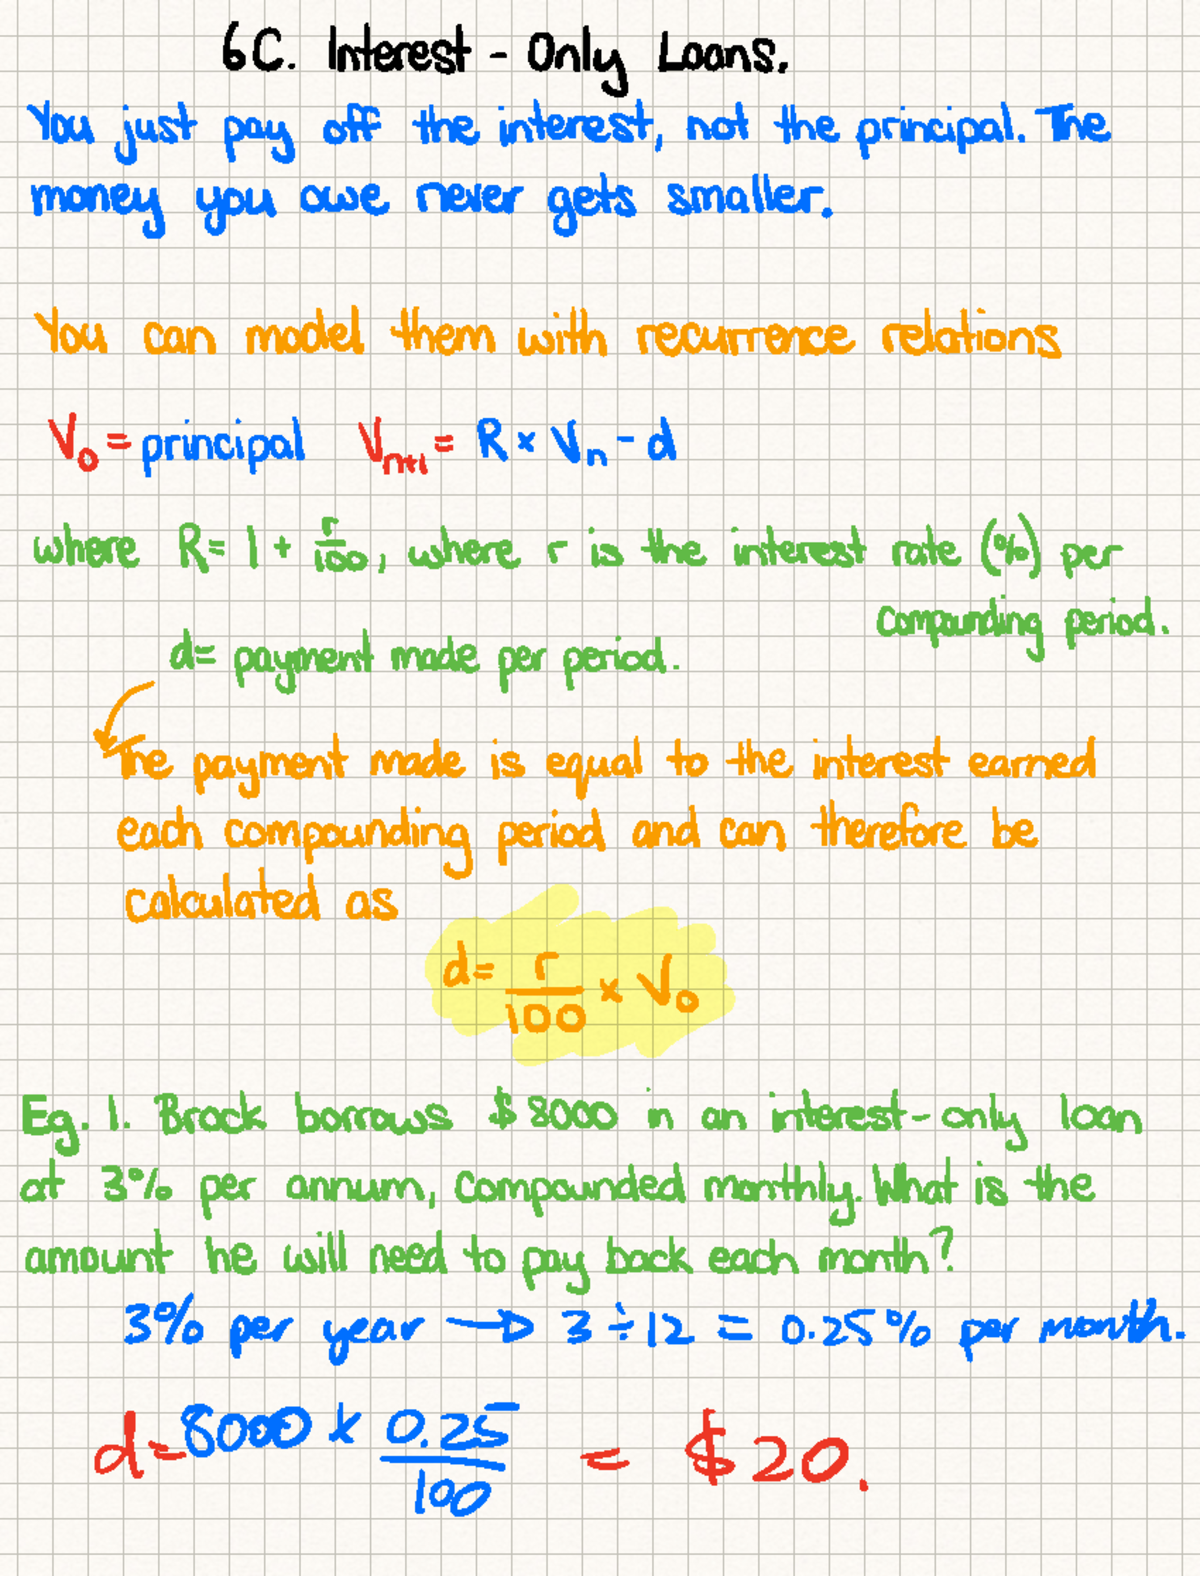 6C. Interest - Only Loans.
You just pay off the interest, not the principal. The
money you owe never gets smaller.
You can model them with recurrence relations
V₀ = principal Vₙ₊₁ = R × Vₙ - d
where R = 1 + r/100, where r is the interest rate (%) per
compounding period.
d = payment made per period.
The payment made is equal to the interest earned
each compounding period and can therefore be
calculated as
d = r/100 × V₀
Eg. 1. Brock borrows $8000 in an interest-only loan
at 3% per annum, compounded monthly. What is the
amount he will need to pay back each month?
3% per year → 3 ÷ 12 = 0.25% per month.
d = 8000 × 0.25/100 = $20.